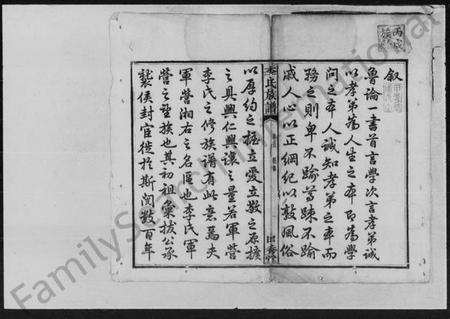 叙
魯論一書首言學次言孝弟誠
以孝弟為人生之本即為學
問之本人誠知孝弟之本而
務之則卑不踰尊踈不踰
戚人心以正綱紀以敦風俗
以厚約之極立愛立敬之原擴
之具興仁興讓之量若軍營
李氏之修族譜有此意焉夫
軍營湘右之名區也李氏軍
營之望族也其初祖
拔公承
襲侯封宦徙於斯閱數百年
李氏族譜
丙戌
FamilySearch International